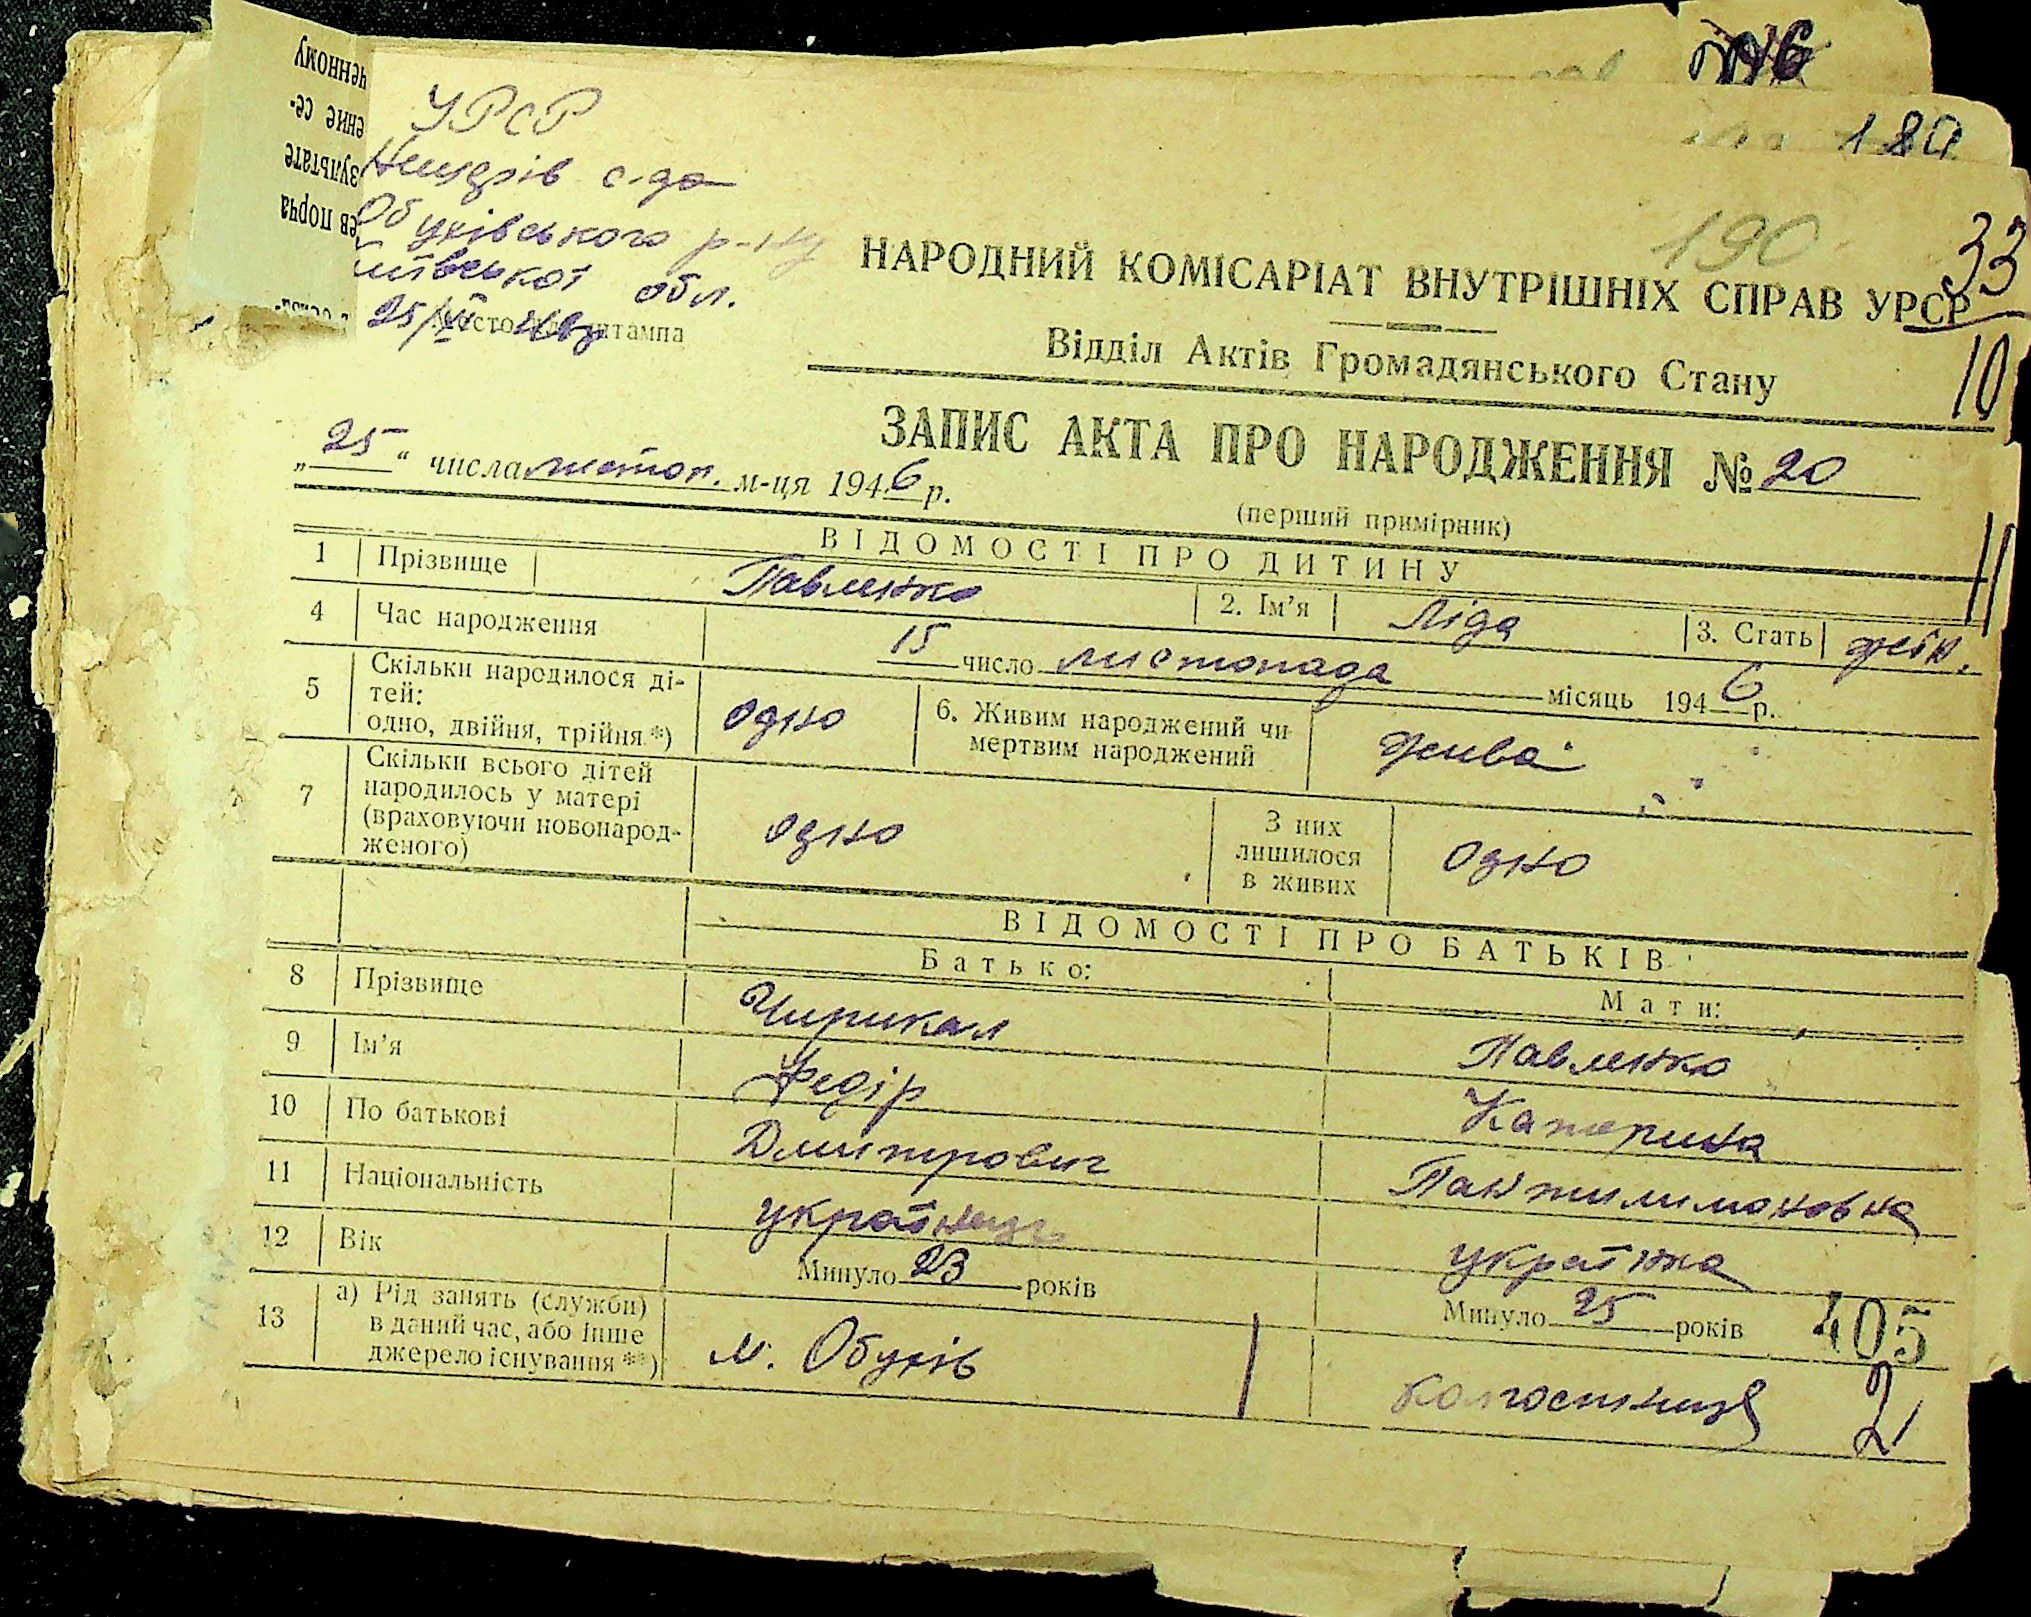 ченному
ение се-
зультате
ев порча
УРСР
с-да
Обухівського р-ну
Київської обл.
25/XI 46р
Місто для штампа
189
190
33
10
НАРОДНИЙ КОМІСАРІАТ ВНУТРІШНІХ СПРАВ УРСР
Відділ Актів Громадянського Стану
ЗАПИС АКТА ПРО НАРОДЖЕННЯ № 20
„25“ числа листоп. м-ця 1946 р.
(перший примірник)
ВІДОМОСТІ ПРО ДИТИНУ
1 Прізвище Павленко 2. Ім’я Ліда 3. Стать жін.
4 Час народження 15 число листопада місяць 1946 р.
5 Скільки народилося ді-
тей:
одно, двійня, трійня *) одно 6. Живим народжений чи
мертвим народжений жива
7 Скільки всього дітей
народилось у матері
(враховуючи новонарод-
женого) одно З них
лишилося
в живих одно
ВІДОМОСТІ ПРО БАТЬКІВ
Батько: Мати:
8 Прізвище Чирикал Павленко
9 Ім’я Федір Катерина
10 По батькові Дмитрович Пантилимоновна
11 Національність українець українка
12 Вік Минуло 23 років Минуло 25 років
13 а) Рід занять (служби)
в даний час, або інше
джерело існування **) м. Обухів колгоспниця
405
2